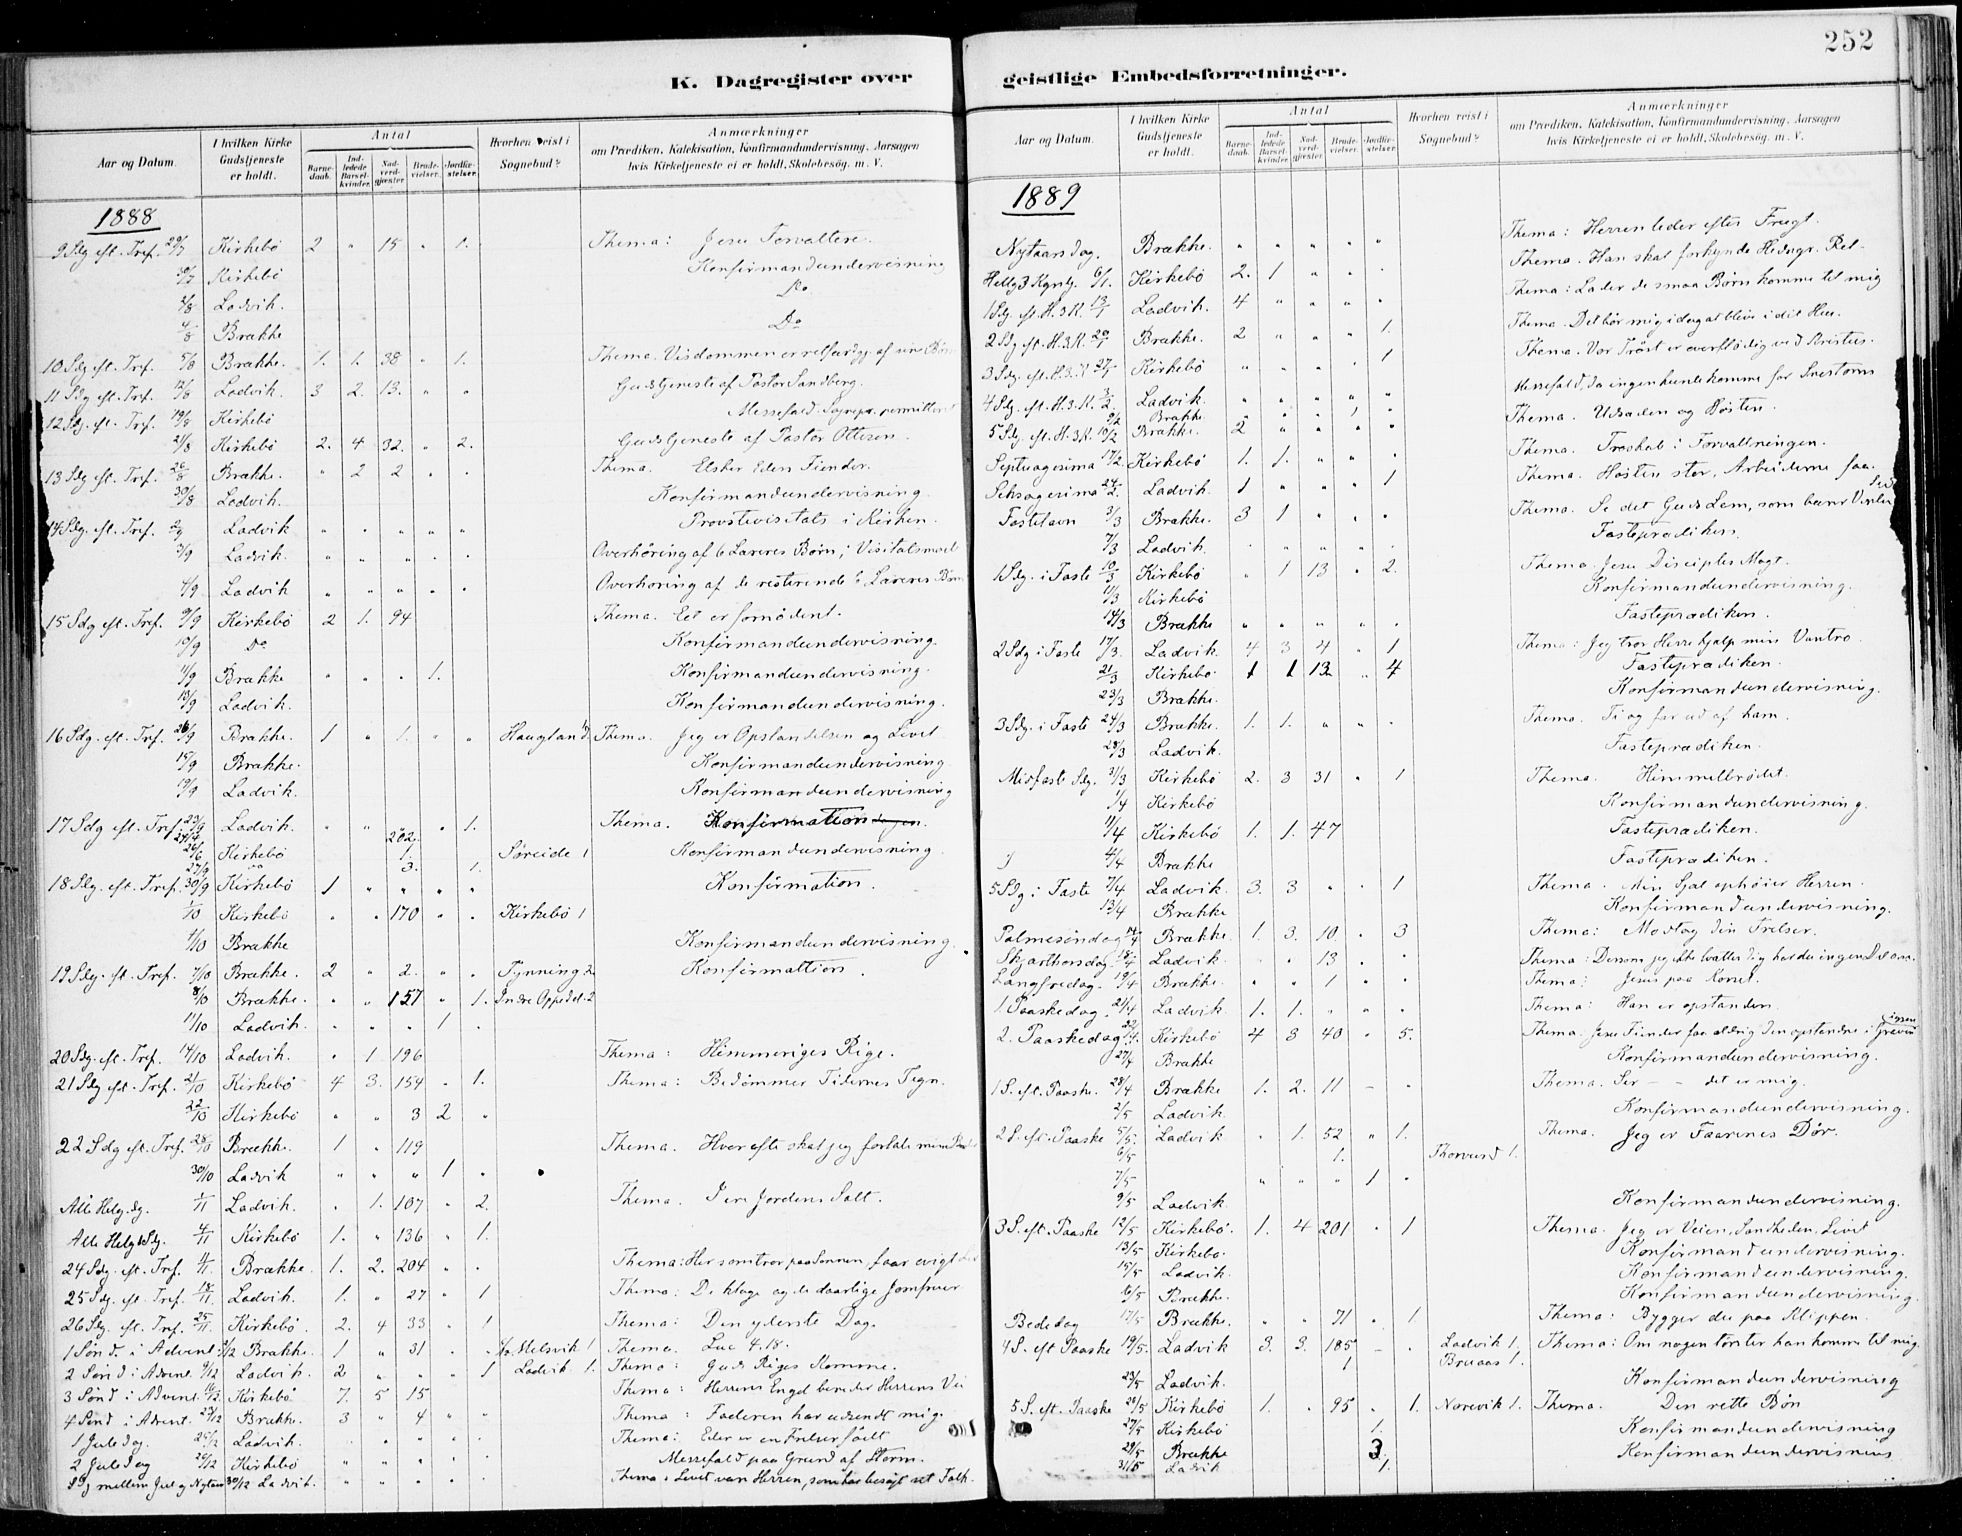 252
K. Dagregister over
geistlige Embedsforretninger.
Aar og Datum.
I hvilken Kirke Gudstjeneste er holdt.
Antal
Barnedaab.
Indledede Barselkvinder.
Nadverdgjester
Brudevielser.
Jordfæstelser.
Hvorhen reist i Sognebud?
Anmærkninger
om Prædiken, Katekisation, Konfirmandundervisning, Aarsagen
hvis Kirketjeneste ei er holdt, Skolebesøg. m. V.
1888
9 Sdg eft. Tref. 29/7 Kirkebö 2 " 15 " 1. Thema: Jesu Forvaltere.
30/7 Kirkebö Konfirmandundervisning
3/8 Ladvik Do
4/8 Brække Do
10 Sdg eft. Tref. 5/8 Brække. 1. 1. 38 " 1. Thema. Visdommen er retfærdg. af sine Børn
11 Sdg eft. Tref. 12/8 Ladvik. 3 2. 13. " " Gudstjeneste af Pastor Sandberg.
12 Sdg. eft. Tref. 19/8 Kirkebö Messefald. Sognepr. permitteret
21/8 Kirkebö 2. 4 32. " 2. Gudstjeneste af Pastor Ottesen.
13 Sdg. eft. Tref. 26/8 Brække. " 2 2 " " Thema. Elsker Eders Fiender.
30/8 Ladvik. Konfirmandundervisning.
14 Sdg. eft. Tref. 2/9 Ladvik " " " " " Provstevisitats i Kirken.
3/9 Ladvik. " " " " " Overhöring af 6 Læreres Börn; Visitatsmøde
4/9 Ladvik " " " " " Overhöring af de resterende 6 Læreres Börn
15 Sdg eft. Tref. 9/9 Kirkebö 2 1. 94 Thema. Eet er fornödent.
10/9 Do Konfirmandundervisning.
11/9 Brække " " " 1. Konfirmandundervisning.
13/9 Ladvik. Konfirmandundervisning.
16 Sdg. eft. Tref. 16/9 Brække. 1 " 1. " " Haugland Thema. Jeg er Opstandelsen og Livet.
15/9 Brække. Konfirmandundervisning.
19/9 Ladvik. Konfirmandundervisning
17 Sdg eft. Tref. 23/9 Ladvik. " " " 1. Thema. Konfirmation
24/9 202.
Kirkebö 1. Søreide 1 Konfirmandundervisning.
27/9 3. 1.
18 Sdg. eft. Tref. 30/9 Kirkebö 1 " " " " Konfirmation.
1/10 Kirkebö " " 170 " " Kirkebö 1
4/10 Brække Konfirmandundervisning.
19 Sdg. eft. Tref. 7/10 Brække. 2 " 2. " " Tynning. 2 Konfirmattion.
8/10 Brække. " " 157 " 1. Indre Oppedal. 2
11/10 Ladvik. " " " 1 "
20 Sdg. eft. Tref. 14/10 Ladvik. " 1 196 Thema: Himmeriges Rige.
21 Sdg eft. Tref. 21/10 Kirkebö 4 3. 154 " 1. Thema: Bedömmer Tidernes Tegn.
22/10 Kirkebö " " 3 2 "
22 Sdg eft. Tref. 28/10 Brække. 1 " 119 Thema. Hvor ofte skal jeg forlade min
30/10 Ladvik " " " 1 "
Alle Helg. dg. 1/11 Ladvik. " 1. 107 " 2. Thema. I ere Jordens Salt.
Alle Helg. Sdg. 4/11 Kirkebö 1. " 136 " 1.
24 Sdg. eft. Tref. 11/11 Brække. 1. 2. 204 " " Thema: Hver som tror paa Sønnen, faar evigt
25 Sdg. eft. Tref. 18/11 Ladvik. 1. " 27 " 1 Thema: De kloge og de daarlige Jomfruer
26 Sdg. eft. Tref. 25/11 Kirkebö. 2. 4 33 " 1 Thema: Den yderste Dag.
1 Sønd. i Advent 2/12 Brække. 1 " 31 " " Melsvik 1 Thema. Luc 4. 18.
2 Sønd i Advent 9/12 Ladvik. 2 " " " 1 Ladvik 1. Thema: Guds Riges Komme.
3 Sønd. i Advent. 16/12 Kirkebö 7. 5 15 Thema: Herrens Engel bereder Herrens Vei
4 Sønd i Advent. 23/12 Brække. 3 " 4 " " Thema: Faderen har udsendt mig.
1 Juledag. 25/12 Ladvik. " " " " Thema: Eder er en Frelser født
2 Juledag 26/12 Kirkebö " " " " Messefald paa Grund af Storm.
Sdg mellem Jul og Nytaar 30/12 Ladvik. " " " " " Thema. Lovet være Herren, som har besøgt sit Folk.
Aar og Datum.
I hvilken Kirke Gudstjeneste er holdt.
Antal
Barnedaab.
Indledede Barselkvinder.
Nadverdgjester
Brudevielser.
Jordfæstelser.
Hvorhen reist i Sognebud?
Anmærkninger
om Prædiken, Katekisation, Konfirmandundervisning, Aarsagen
hvis Kirketjeneste ei er holdt, Skolebesøg. m. V.
1889
Nytaarsdag. Brække. " " " " " Thema: Herren leder efter Frugt.
Hellg 3 Kgrsdg. 6/1. Kirkebö 2. 1 " " " Thema. Han skal forkynde Hedngr. Ret-
1 Sdg. eft. H. 3 K. 13/1 Ladvik. 4 " " " " Thema: Lader de smaa Børn komme til mig
2 Sdg eft. H. 3 K. 20/1 Brække. 2 " " " 1. Thema. Det bør mig idag at blive i dit Hus.
3 Sdg. eft. H. 3. K 27/1 Kirkebö " " " " 1 Thema. Vor Tröst er overflödig ved Kristus.
4 Sdg. eft. H. 3. K. 3/2 Ladvik. " " " " " Messefald, da ingen kunde komme for Snestorm
9/2 Brække " " " 1 "
5 Sdg. eft. H. 3 K. 10/2 Brække. 2 " " " " Thema. Udsæden og Høsten.
Septuagesima 17/2. Kirkebö 1. 1. " " " Thema. Troskab i Forvaltningen.
Seksagesima 24/2. Ladvik. 1 " " " 1 Thema. Høsten stor, Arbeiderne faa.
Fastelavn 3/3 Brække. 3 1 " " " Thema. Se det Guds Lam, som bærer Verdens
7/3 Ladvik. " " " " Fasteprædiken.
1 Sdg. i Faste 10/3 Kirkebö " 1 13 " 2. Thema. Jesu Disciples Magt.
11/3 Kirkebö Konfirmandundervisning.
14/3 Brække " " " " " Fasteprædiken.
2 Sdg i Faste 17/3. Ladvik. 4 3 4 " 1 Thema: Jeg tror Herre hjælp min Vantro.
21/3 Kirkebö 1 1 13 " 4 Fasteprædiken.
23/3 Brække. Konfirmandundervisning.
3 Sdg. i Faste 24/3 Brække. 1. 1. " " " Thema. Ti og far ud af ham.
28/3 Ladvik. Fasteprædiken.
Midfaste Sdg. 31/3 Kirkebö 2. 3 31 " 1 Thema. Himmelbrødet.
1/4 Kirkebö Konfirmandundervisning.
11/4 Kirkebö 1. 1. 47 Fasteprædiken.
4/4 Brække Fasteprædiken.
5 Sdg. i Faste 7/4 Ladvik. 3. 3 " " 1 Thema. Min Sjæl ophøier Herren.
13/4 Brække Konfirmandundervisning.
Palmesöndag 14/4 Brække. 1. 3. 10. " 3 Thema: Modtag din Frelser.
Skjærthorsdag 18/4 Ladvik. " " 13 " " Thema: Dersom jeg ikke vatter dig har du ingen Del
Langfredag. 19/4 Brække. " " 1 " " Thema: Jesus paa Korset.
1. Paaskedag. 21/4 Ladvik. 1. 1. " " " Thema: Han er opstanden.
2. Paaskedag 22/4 Kirkebö 4 3 40 " 5. Thema. Jesu Fiender faa aldrig den opstandne i Graven igjen
27/4 Brække Konfirmandundervisning.
1 S. eft. Paaske. 28/4 Brække 1. 2. 11 – " Thema. Ser – – det er mig.
2/5 Ladvik. Konfirmandundervisning.
2 S. eft. Paaske 5/5. Ladvik " 1. 52 " 1. Thema. Jeg er Faarenes Dör.
6/5 1. 1.
7/5 " " " 1 "
9/5 Ladvik. Konfirmandundervisning.
3 S. eft. Paaske 12/5 Kirkebö. 1. 4 201 " 1 Thema. Jeg er Veien, Sandheden, Livet
13/5 Kirkebö. Konfirmandundervisning.
15/5 Ladvik. Konfirmandundervisning.
16/5 Brække. Konfirmandundervisning.
Bededag 17/5 Brække. " " 71 " 1 Thema: Bygger du paa Klippen.
4 S. eft Paaske 19/5. Ladvik 3. 3. 185 – " Ladvik 1. Thema: Om nogen törster han komme til mig.
1 Bruaas 1.
23/5 Ladvik. Konfirmandundervisning
5 S. eft. Paaske 26/5 Kirkebö 1. " 95 " 1. Norevik 1. Thema. Den rette Bön
27/5 Kirkebö 1. Konfirmandundervisning
29/5 Brække 3 Konfirmandundervisning
31/5 Ladvik 1.